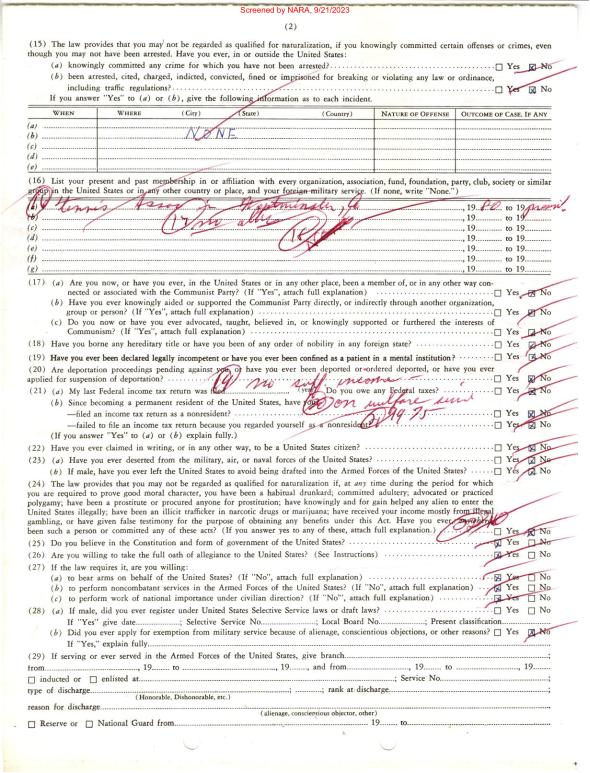 Screened by NARA, 9/21/2023
(2)
(15) The law provides that you may not be regarded as qualified for naturalization, if you knowingly committed certain offenses or crimes, even
though you may not have been arrested. Have you ever, in or outside the United States:
(a) knowingly committed any crime for which you have not been arrested? ☐ Yes ☒ No
(b) been arrested, cited, charged, indicted, convicted, fined or imprisoned for breaking or violating any law or ordinance,
including traffic regulations? ☐ Yes ☒ No
If you answer "Yes" to (a) or (b), give the following information as to each incident.
WHEN WHERE (City) (State) (Country) NATURE OF OFFENSE OUTCOME OF CASE, IF ANY
(a)
(b) NONE
(c)
(d)
(e)
(16) List your present and past membership in or affiliation with every organization, association, fund, foundation, party, club, society or similar
group in the United States or in any other country or place, and your foreign military service. (If none, write "None.")
(a) tennis Assoc Westminster, Ca , 19 80 to 19 present
(b) , 19 to 19
(c) 17 no , 19 to 19
(d) 18 , 19 to 19
(e) , 19 to 19
(f) , 19 to 19
(g) , 19 to 19
(17) (a) Are you now, or have you ever, in the United States or in any other place, been a member of, or in any other way con-
nected or associated with the Communist Party? (If "Yes", attach full explanation) ☐ Yes ☒ No
(b) Have you ever knowingly aided or supported the Communist Party directly, or indirectly through another organization,
group or person? (If "Yes", attach full explanation) ☐ Yes ☒ No
(c) Do you now or have you ever advocated, taught, believed in, or knowingly supported or furthered the interests of
Communism? (If "Yes", attach full explanation) ☐ Yes ☒ No
(18) Have you borne any hereditary title or have you been of any order of nobility in any foreign state? ☐ Yes ☒ No
(19) Have you ever been declared legally incompetent or have you ever been confined as a patient in a mental institution? ☐ Yes ☒ No
(20) Are deportation proceedings pending against you, or have you ever been deported or ordered deported, or have you ever
applied for suspension of deportation? ☐ Yes ☒ No
19 no suff income
(21) (a) My last Federal income tax return was filed (year) Do you owe any Federal taxes? ☐ Yes ☒ No
(b) Since becoming a permanent resident of the United States, have you:
20 on welfare since
—filed an income tax return as a nonresident? ☐ Yes ☒ No
—failed to file an income tax return because you regarded yourself as a nonresident? ☐ Yes ☒ No
(If you answer "Yes" to (a) or (b) explain fully.)
(22) Have you ever claimed in writing, or in any other way, to be a United States citizen? ☐ Yes ☒ No
(23) (a) Have you ever deserted from the military, air, or naval forces of the United States? ☐ Yes ☒ No
(b) If male, have you ever left the United States to avoid being drafted into the Armed Forces of the United States? ☐ Yes ☒ No
(24) The law provides that you may not be regarded as qualified for naturalization if, at any time during the period for which
you are required to prove good moral character, you have been a habitual drunkard; committed adultery; advocated or practiced
polygamy; have been a prostitute or procured anyone for prostitution; have knowingly and for gain helped any alien to enter the
United States illegally; have been an illicit trafficker in narcotic drugs or marijuana; have received your income mostly from illegal
gambling, or have given false testimony for the purpose of obtaining any benefits under this Act. Have you ever
been such a person or committed any of these acts? (If you answer yes to any of these, attach full explanation.) ☐ Yes ☒ No
(25) Do you believe in the Constitution and form of government of the United States? ☒ Yes ☐ No
(26) Are you willing to take the full oath of allegiance to the United States? (See Instructions) ☒ Yes ☐ No
(27) If the law requires it, are you willing:
(a) to bear arms on behalf of the United States? (If "No", attach full explanation) ☒ Yes ☐ No
(b) to perform noncombatant services in the Armed Forces of the United States? (If "No", attach full explanation) ☒ Yes ☐ No
(c) to perform work of national importance under civilian direction? (If "No", attach full explanation) ☒ Yes ☐ No
(28) (a) If male, did you ever register under United States Selective Service laws or draft laws? ☐ Yes ☐ No
If "Yes" give date; Selective Service No.; Local Board No.; Present classification
(b) Did you ever apply for exemption from military service because of alienage, conscientious objections, or other reasons? ☐ Yes ☒ No
If "Yes," explain fully
(29) If serving or ever served in the Armed Forces of the United States, give branch;
from , 19 to , 19 , and from , 19 to , 19
☐ inducted or ☐ enlisted at ; Service No. ;
type of discharge ; rank at discharge ;
(Honorable, Dishonorable, etc.)
reason for discharge
(alienage, conscientious objector, other)
☐ Reserve or ☐ National Guard from 19 to